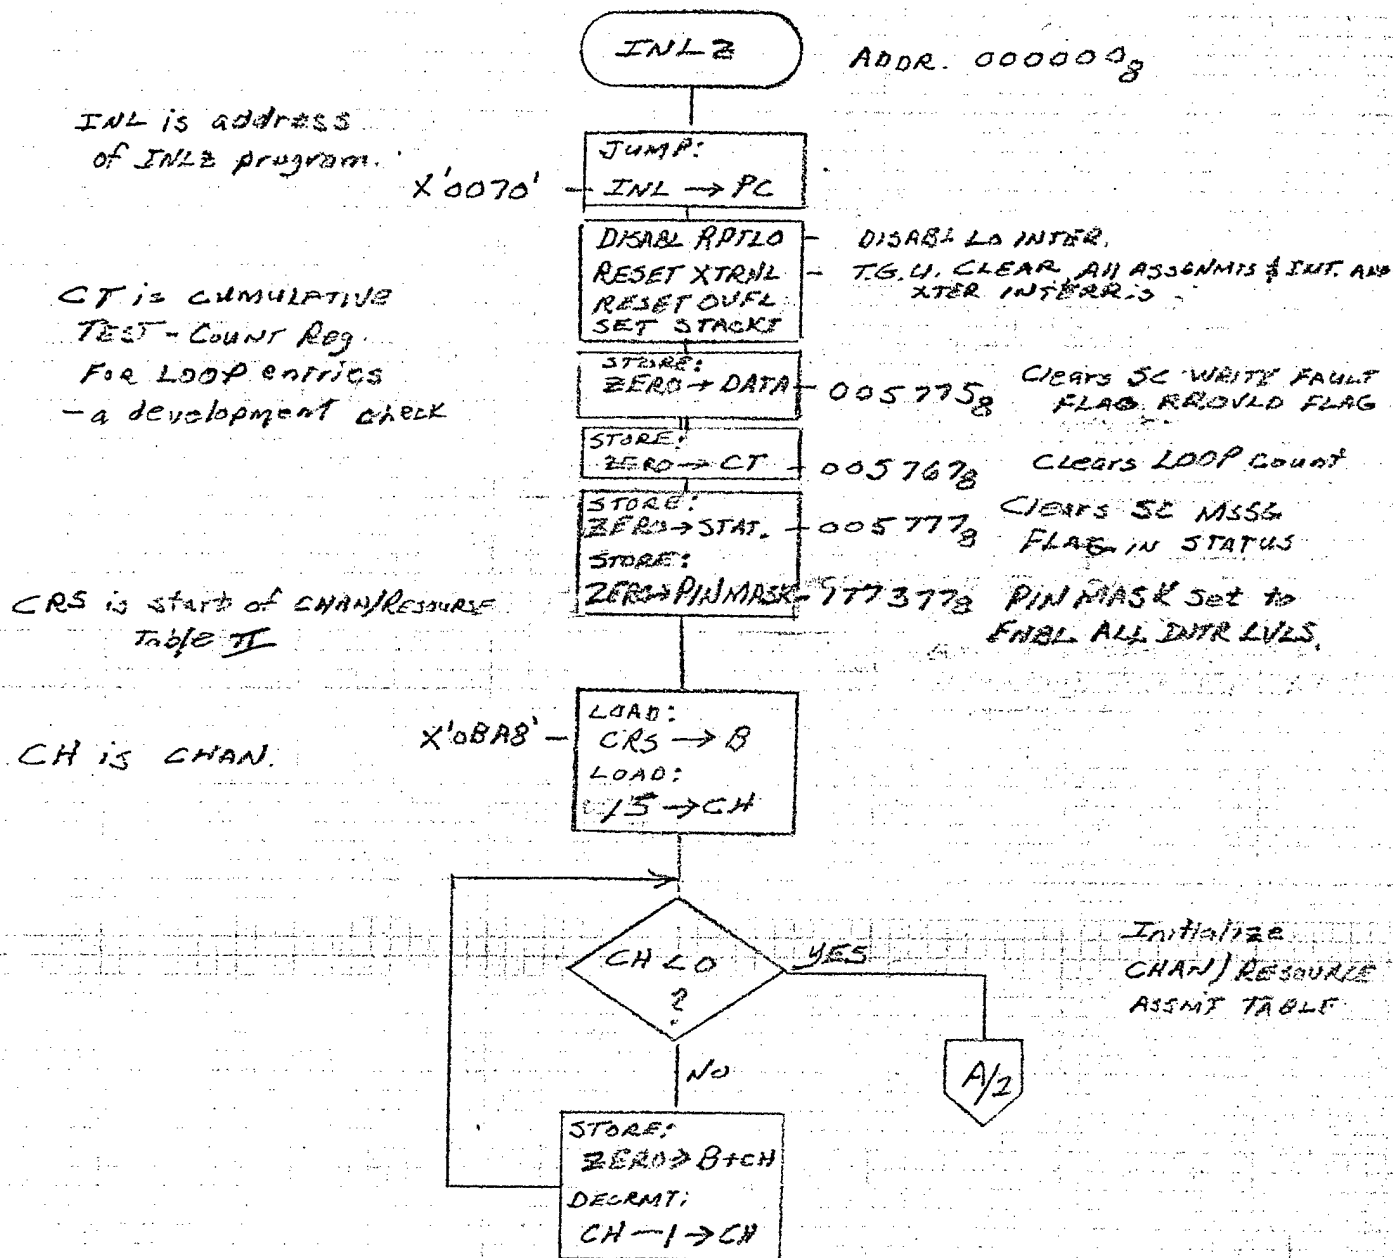 INLZ
ADDR. 000000₈
INL is address
of INLZ program.
JUMP:
X'0070' – INL → PC
DISABL RPTLO – DISABL LO INTER.
RESET XTRNL – T.G.U. CLEAR All ASSGNMTS & INT. AND
XTER INTERR.S
RESET OVFL
SET STACKT
CT is CUMULATIVE
TEST-COUNT Reg.
FOR LOOP entries
– a development check
STORE:
ZERO → DATA – 005775₈
Clears SC WRITE FAULT
FLAG FLAG
STORE:
ZERO → CT – 005767₈ Clears LOOP Count
STORE:
ZERO → STAT. – 005777₈
Clears SC MSSG
FLAG IN STATUS
STORE:
ZERO → PINMASK – 177377₈ PIN MASK set to
ENBL ALL INTR LVLS.
CRS is start of CHAN/RESOURSE
Table II
LOAD:
X'0BA8' – CRS → B
LOAD:
15 → CH
CH is CHAN.
CH < 0
?
YES
A/2
Initialize
CHAN/RESOURCE
ASSMT TABLE
NO
STORE:
ZERO → B+CH
DECRMT:
CH – 1 → CH